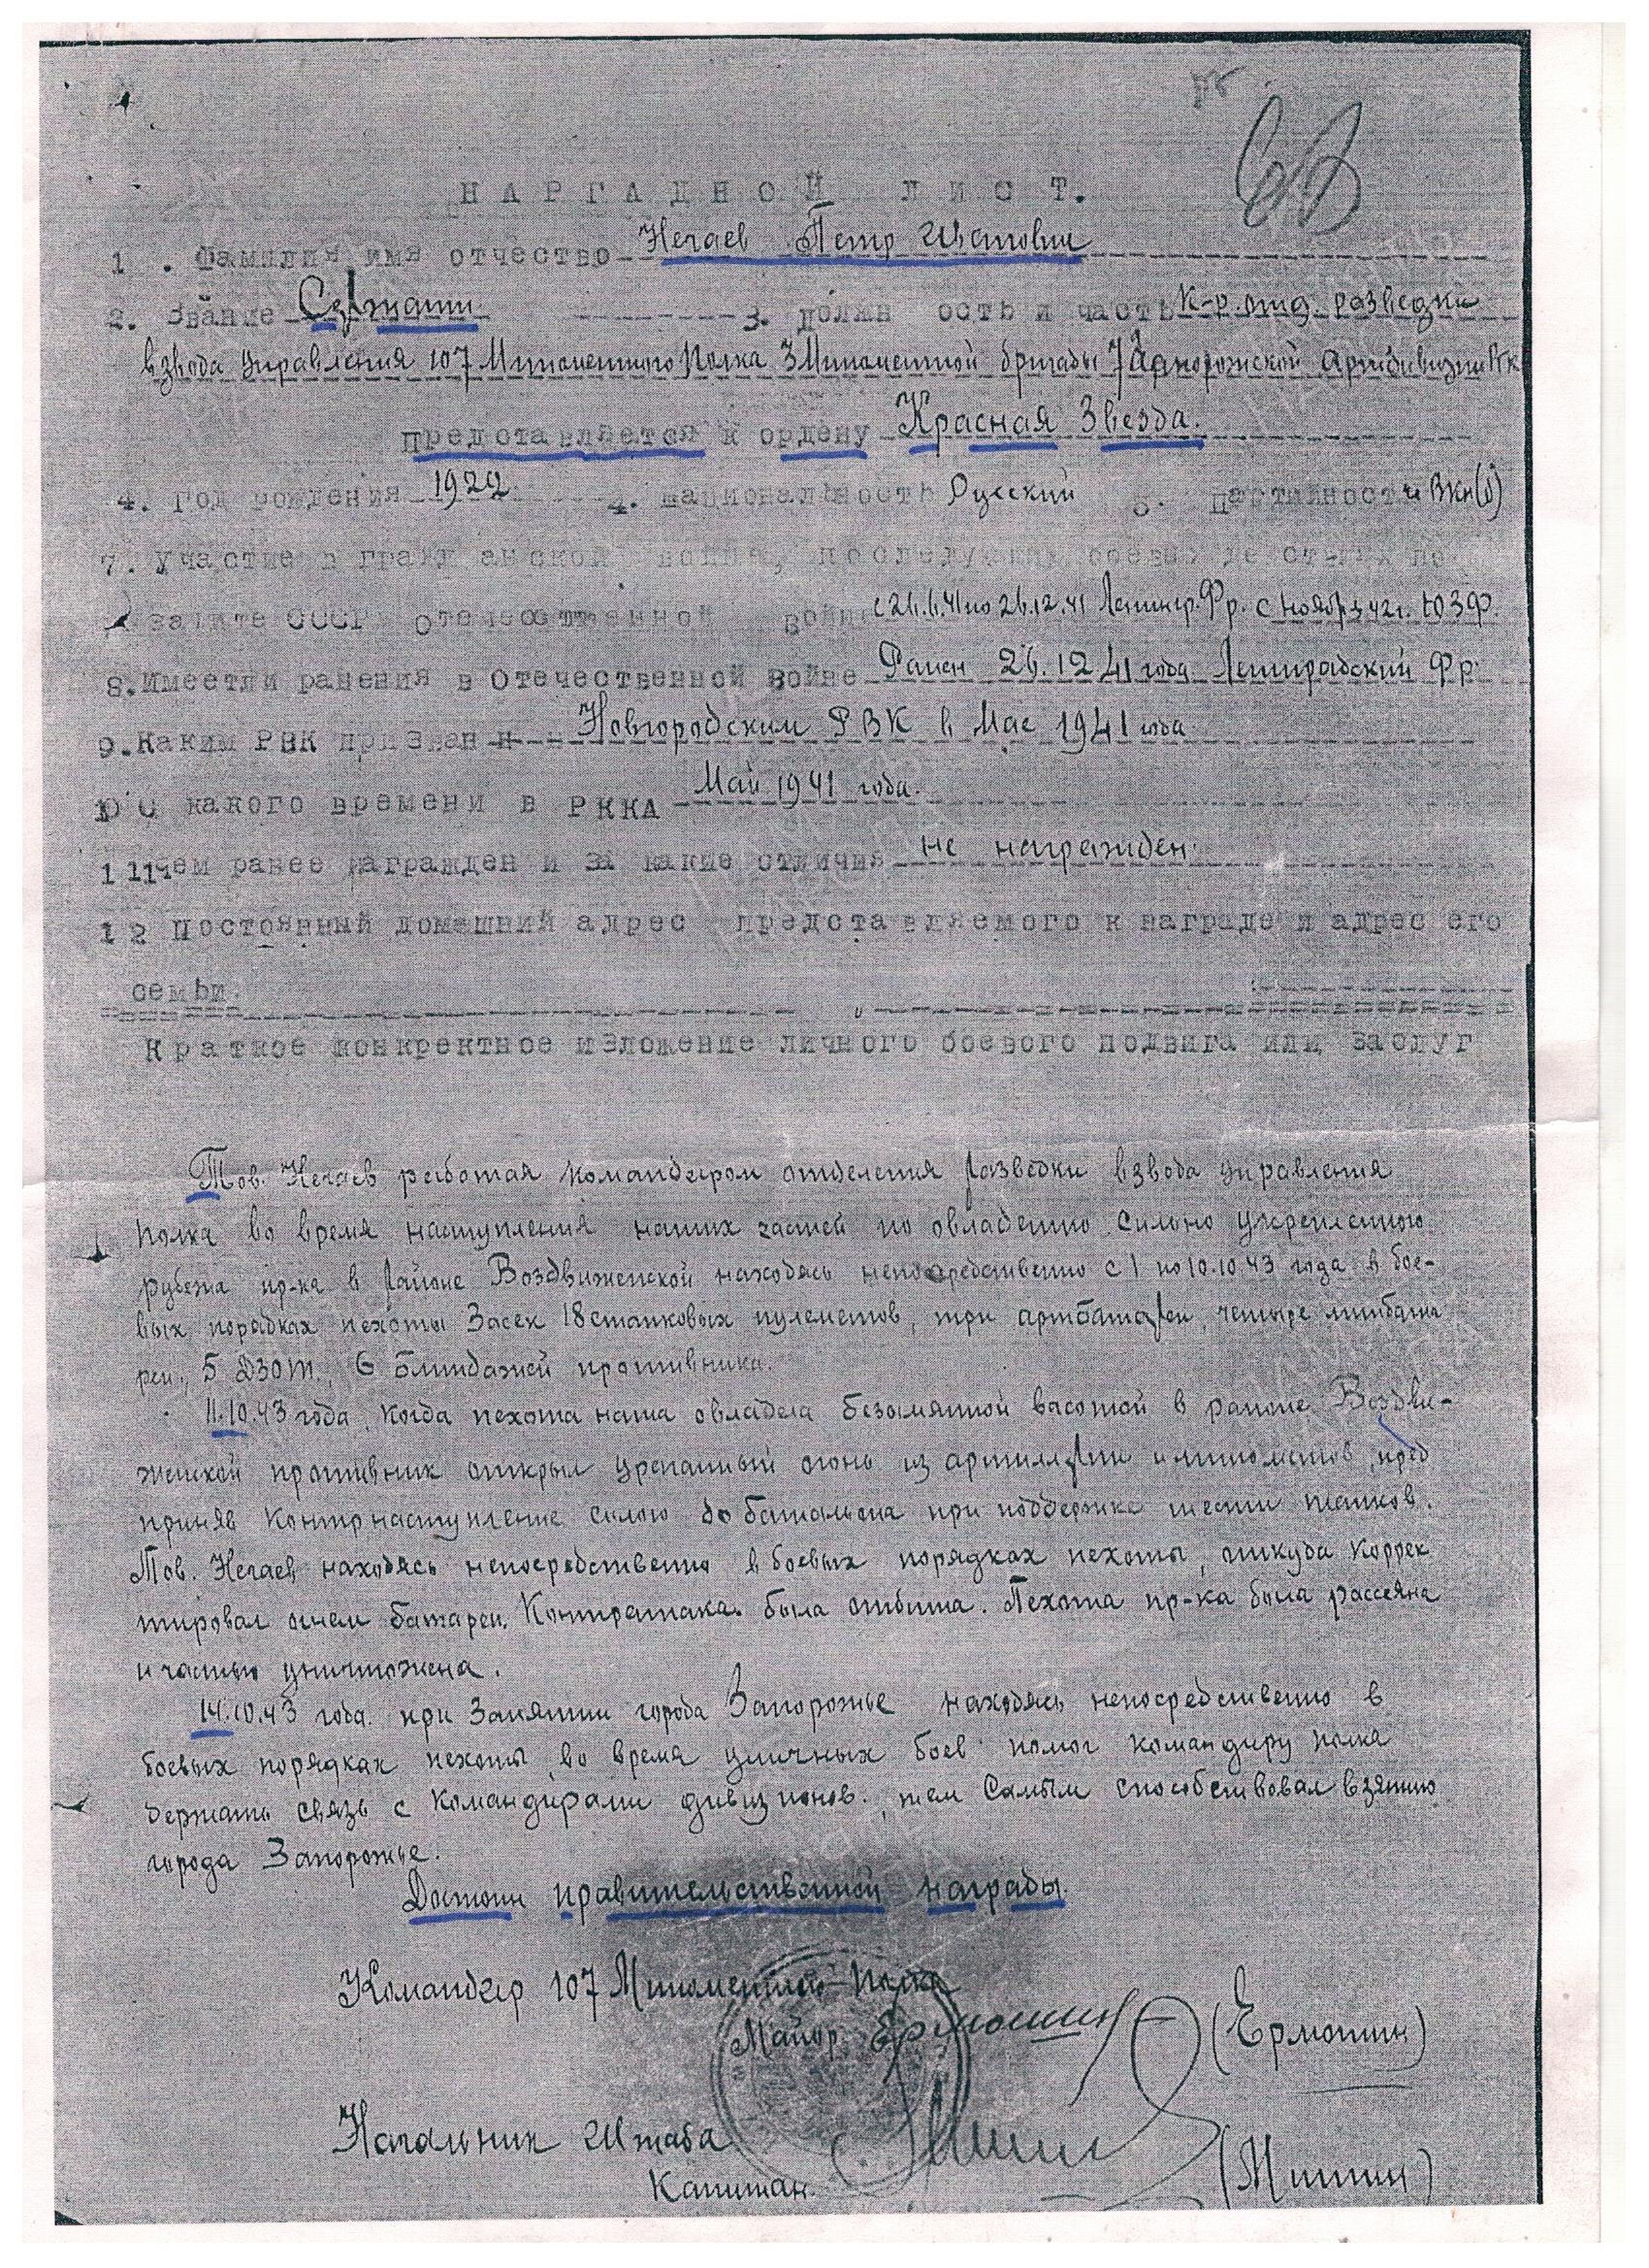 НАРГАДНОЙ ЛИСТ.
1 . Фамилия имя отчество Нечаев Петр
2. Звание Сержант 3. Должн ость и часть К-р отд. разведки
взвода управления 107 Минометного Полка 3 Минометной бригады 7 Запорожской Артдивизии РГК
Представляется к ордену Красная Звезда.
4. Год рождения 1922 4. Национальность Русский 6. Партийность ВКП(б)
7. Участие в гражданской войне, последующих боевых действиях по
защите СССР Отечественной войне с 26.6.41 по 26.12.41 Ленингр. Фр. с ноября 42 г. ЮЗФ.
8. Имеет ли ранения в Отечественной войне Ранен 26.12 41 года Ленинградский Фр.
9. Каким РВК призван Новгородским РВК в Мае 1941 года
10 С какого времени в РККА Май 1941 года.
11 Чем ранее награжден и за какие отличия не награжден.
12 Постоянный домашний адрес представляемого к награде и адрес его
семьи.
Краткое конкретное изложение личного боевого подвига или заслуг
Тов. Нечаев работая командиром отделения разведки взвода управления
полка во время наступления наших частей по овладению сильно укрепленного
рубежа пр-ка в районе Воздвиженской находясь непосредственно с 1 по 10.10.43 года в бое-
вых порядках пехоты Засек 18 станковых пулеметов, три артбатареи, четыре минбата
реи, 5 ДЗОТ, 6 блиндажей противника.
11.10.43 года, когда пехота наша овладела безымянной васотой в районе Воздви-
женской противник открыл ураганный огонь из артиллерии и минометов, пред
приняв контрнаступление силою до батальона при поддержке шести танков.
Тов. Нечаев находясь непосредственно в боевых порядках пехоты, откуда коррек
тировал огнем батареи. Контратака была отбита. Пехота пр-ка была рассеяна
и частью уничтожена.
14.10.43 года при занятии города Запорожье находясь непосредственно в
боевых порядках пехоты, во время уличных боев помог командиру полка
держать связь с командирами дивизионов, тем самым способствовал взятию
города Запорожье.
Достоин правительственной награды.
Командир 107 Минометного полка
Майор Ермошин (Ермошин)
Начальник Штаба
Капитан. (Мишин)